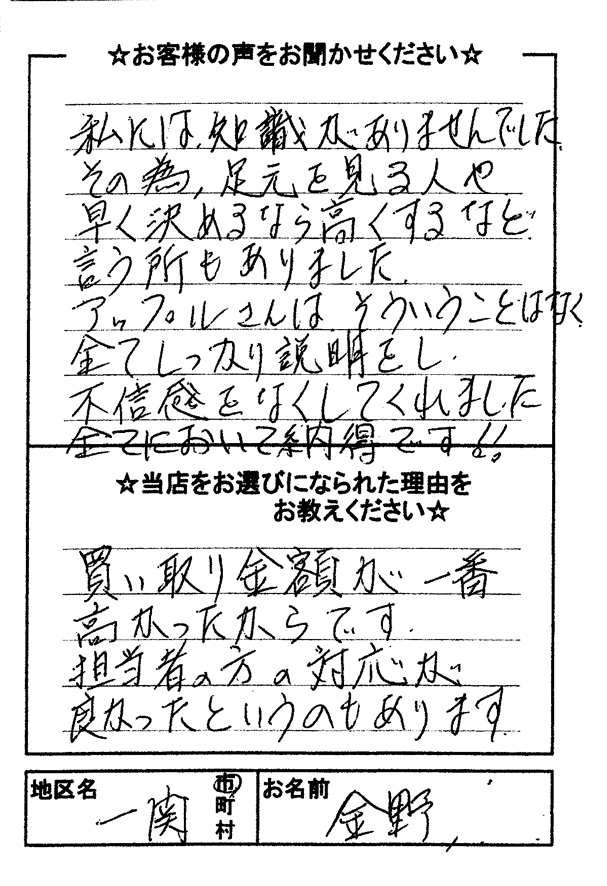 ☆お客様の声をお聞かせください☆
私には、知識がありませんでした。
その為、足元を見る人や
早く決めるなら高くするなど
言う所もありました。
アップルさんは、そういうことはなく
全てしっかり説明をし、
不信感をなくしてくれました
全てにおいて納得です!!
☆当店をお選びになられた理由を
お教えください☆
買い取り金額が一番
高かったからです。
担当者の方の対応が
良かったというのもあります
地区名 一関 市町村 お名前 金野